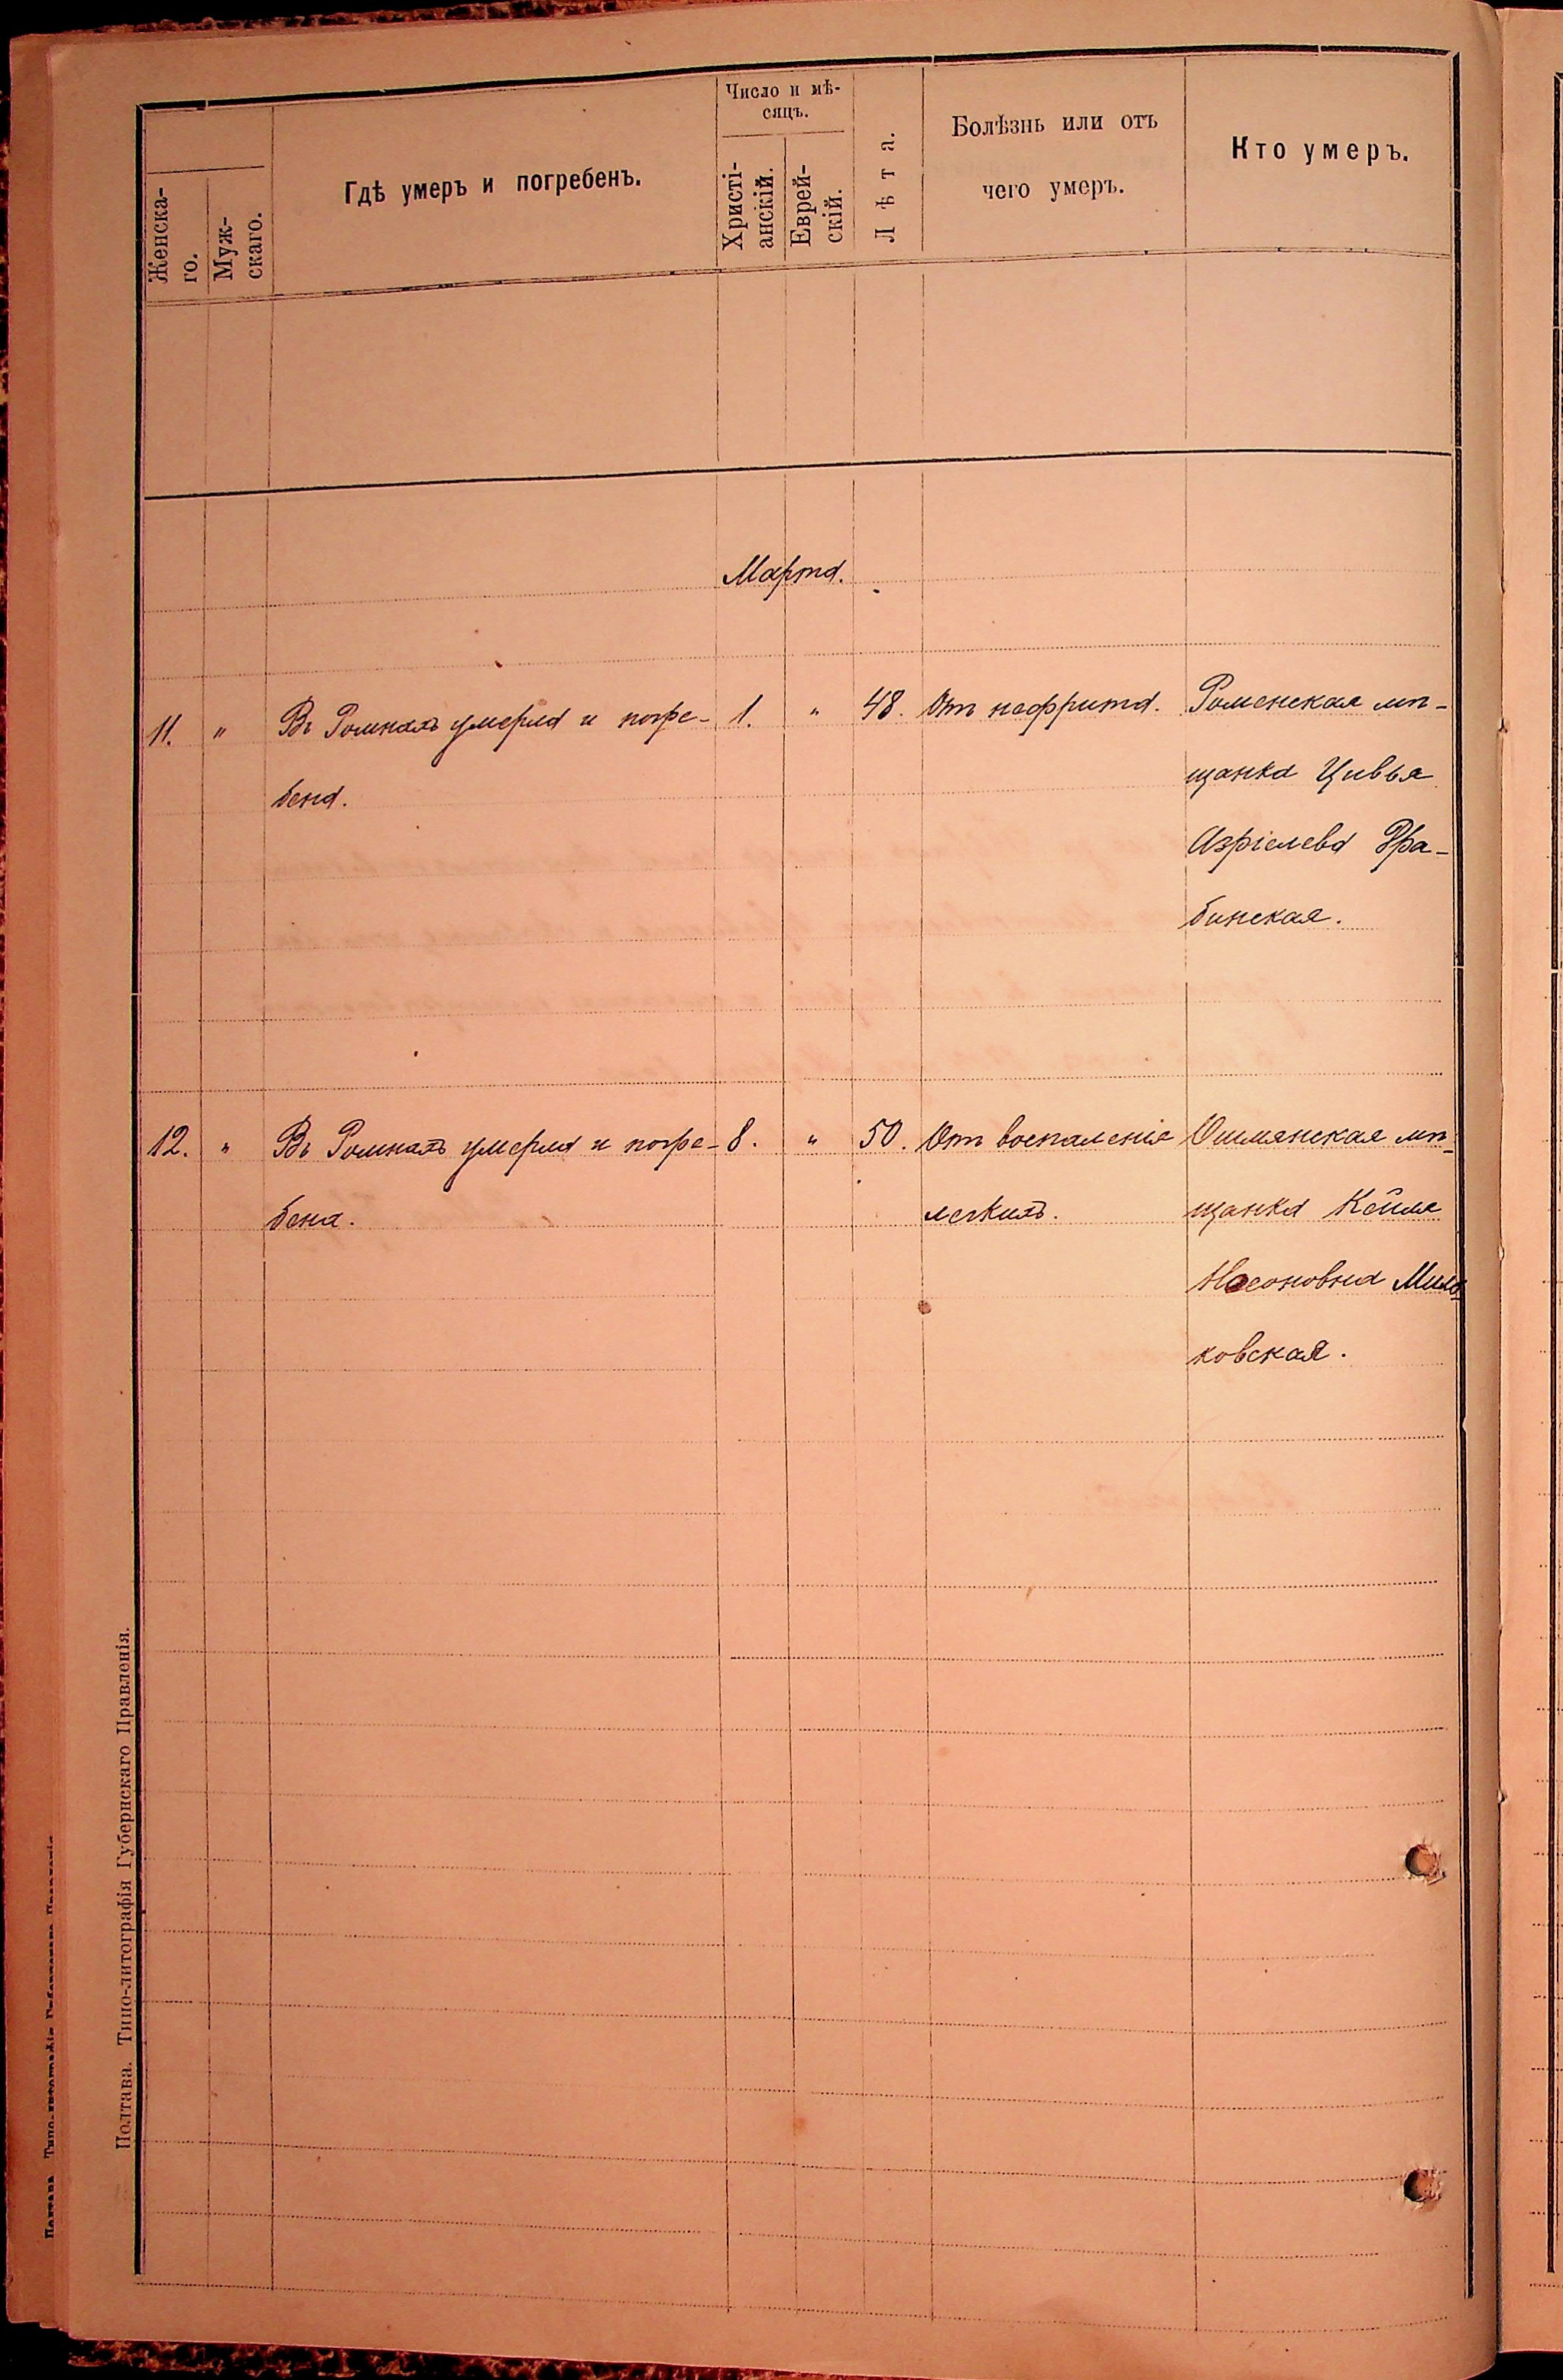 Женска-
го.
Муж-
скаго.
Гдѣ умеръ и погребенъ.
Число и мѣ-
сяцъ.
Христі-
анскій.
Еврей-
скій.
Лѣта.
Болѣзнь или отъ
чего умеръ.
Кто умеръ.
Марта.
11. " Въ Ромнахъ умерла и погре- 1. " 48. Отъ нефрита. Роменская мѣ-
бена. щанка Цивья
Азріелева Гра-
бинская.
12. " Въ Ромнахъ умерла и погре- 8. " 50. Отъ воспаленія Ошмянская мѣ-
бена. легкихъ. щанка Кейля
Носоновна Миль-
ковская.
Полтава. Типо-литографія Губернскаго Правленія.